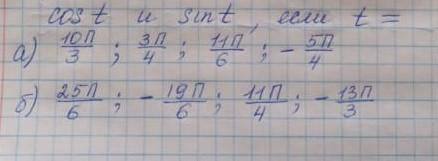 cos t и sin t, если t =
а) 10П/3 ; 3П/4 ; 11П/6 ; - 5П/4
б) 25П/6 ; - 19П/6 ; 11П/4 ; - 13П/3